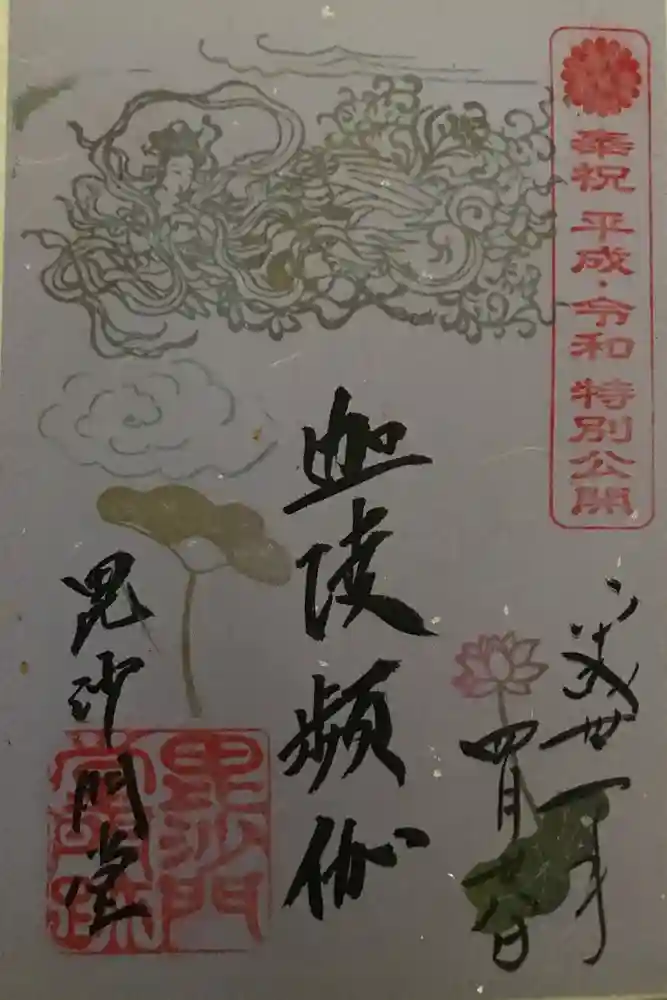 奉祝 平成・令和 特別公開
平成丗一年
四月
迦陵頻伽
毘沙門堂
毘沙門
堂門跡